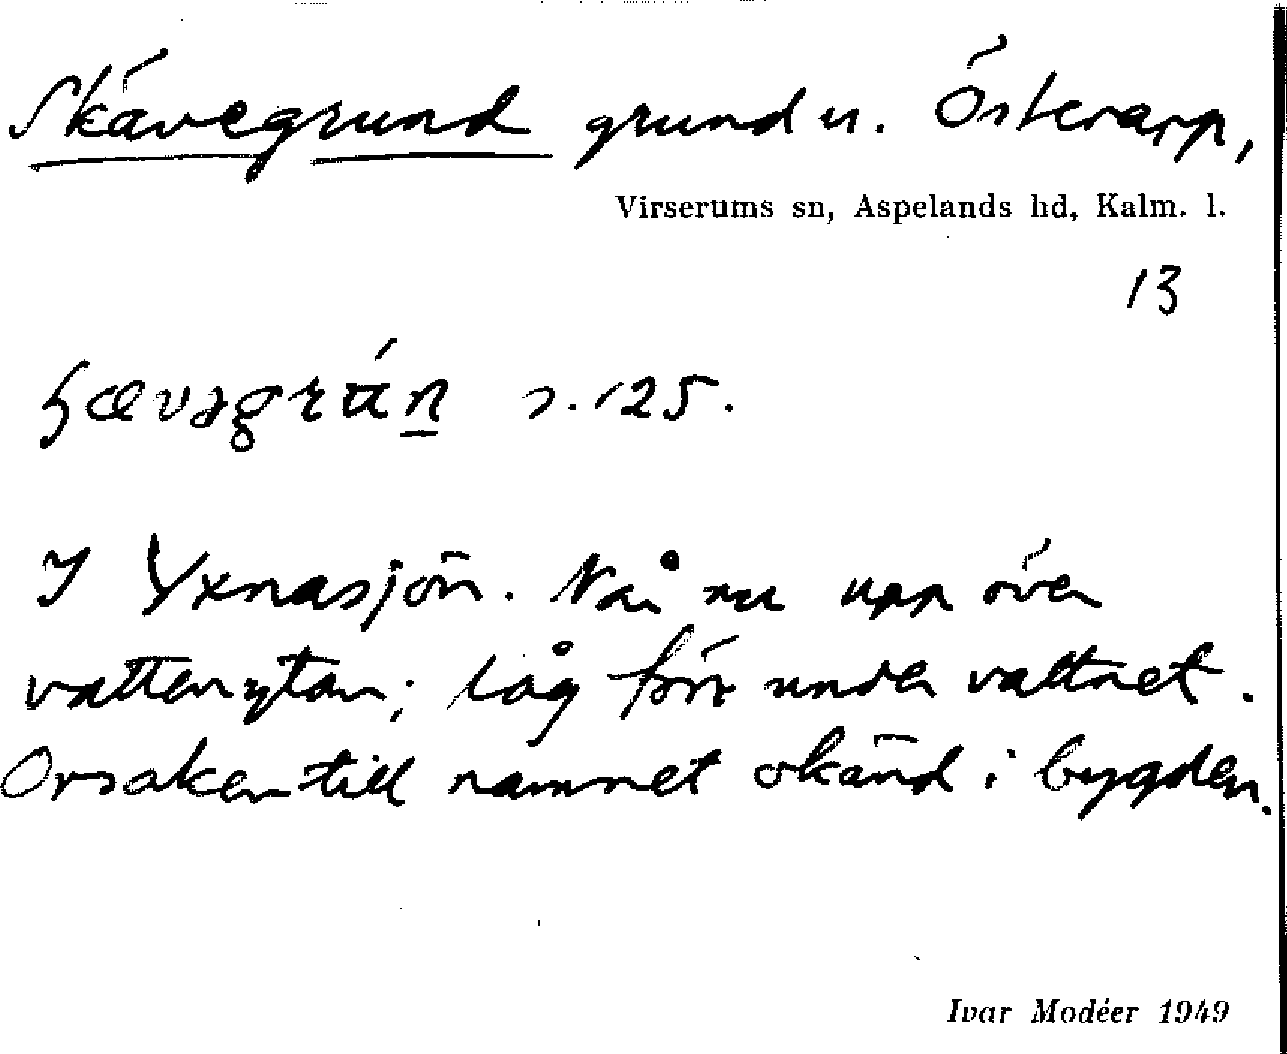 Skävegrund grund u. Österarp,
Virserums sn, Aspelands hd, Kalm. l.
13
s. 125.
I Yxnasjön. Når nu upp över
vattenytan; låg förr under vattnet.
Orsaken till namnet okänd i bygden.
Ivar Modéer 1949